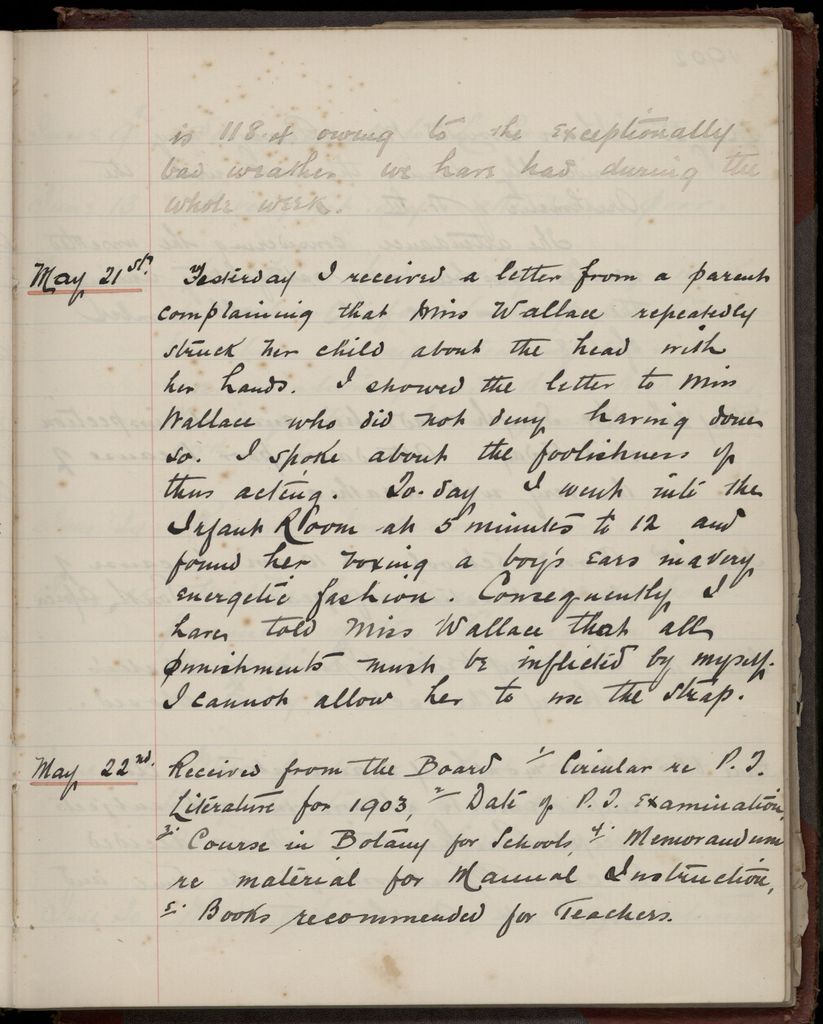 is 118.4 owing to the exceptionally
bad weather we have had during the
whole week.
May 21st. Yesterday I received a letter from a parent
complaining that Miss Wallace repeatedly
struck her child about the head with
her hands. I showed the letter to Miss
Wallace who did not deny having done
so. I spoke about the foolishness of
thus acting. To-day I went into the
Infant Room at 5 minutes to 12 and
found her boxing a boy's ears in a very
energetic fashion. Consequently I
have told Miss Wallace that all
punishments must be inflicted by myself.
I cannot allow her to use the strap.
May 22nd. Received from the Board 1/ Circular re P. T.
Literature for 1903, 2/ Date of P. T. Examination,
3/. Course in Botany for Schools, 4/. Memorandum
re material for Manual Instruction,
5/. Books recommended for Teachers.